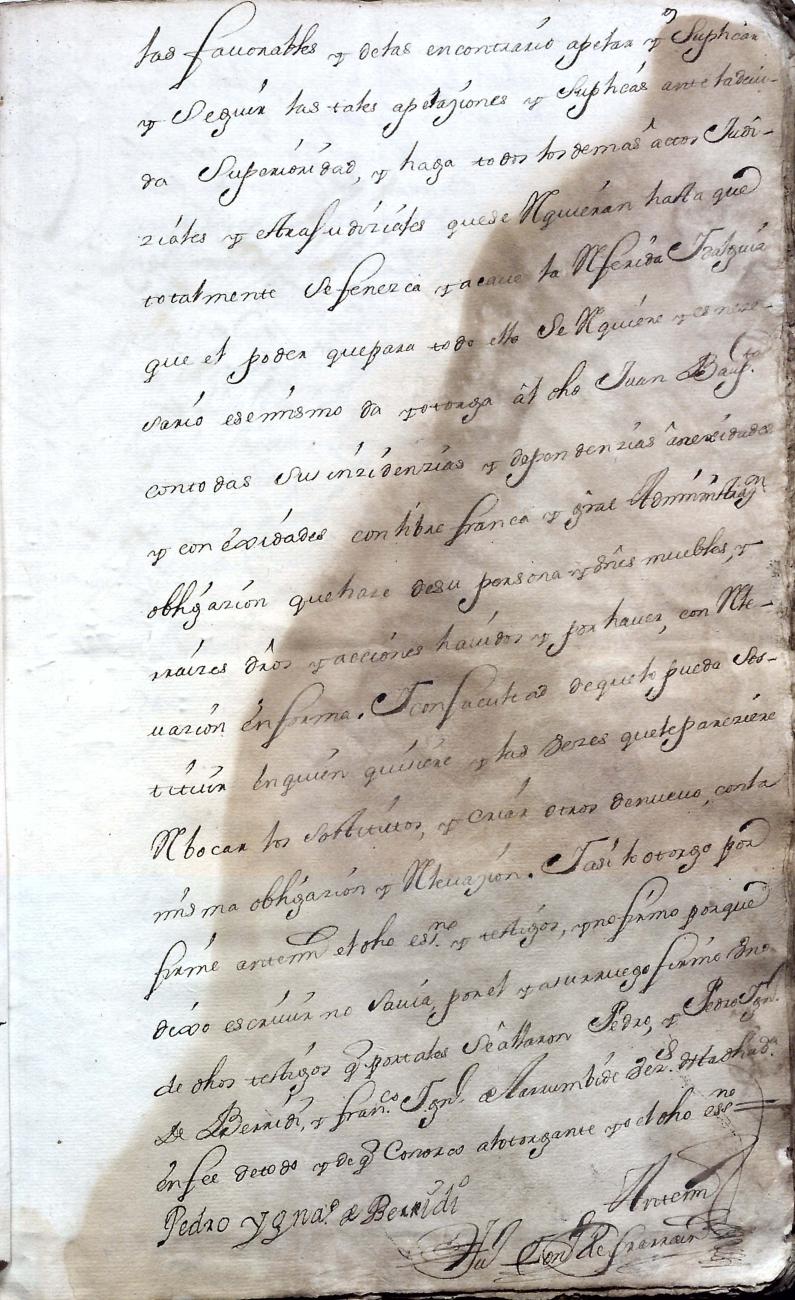 las favorables y delas encontrario apelar y Suplicar
y Seguir las tales apelaziones y Suplicas ante la devi-
da Superioridad, y haga todos los demas actos Judi-
ziales y estrajudiziales que se Rquieran hasta que
totalmente Se fenezca y acave la Rferida
que el poder que para todo ello Se Rquiere y es neze-
sario ese mismo da y otorga âl dho Juan Bap.ta
con todas Sus inzidenzias y dependenzias ânexidades
y conexidades con libre franca y gral Administraz.on
obligazion que haze de su persona y vnes muebles, y
rraizes dros y acciones havidos y por haver, con Rle-
vazion en forma. I con facultad de que lo pueda sos-
tituir en quien quisiere y las vezes que le pareziere
Rbocar los sostitutos, y criar otros de nuevo, con la
misma obligazion y Rlevazion. I asi lo otorgo por
firme antemi el dho ess.no y testigos, y no firmo porque
dixo escrivir no savia, por el y a su rruego firmo vno
de dhos testigos q̃ por tales Se âllaron Pedro, y Pedro Ign.o
De Berridi, y fran.co Ign.o de Arrumbide vez.s de la dha
en fee de todo y de q̃ Conozco al otorgante yo el dho ess.no =
Pedro Ygna.o de Berridi
Antemi